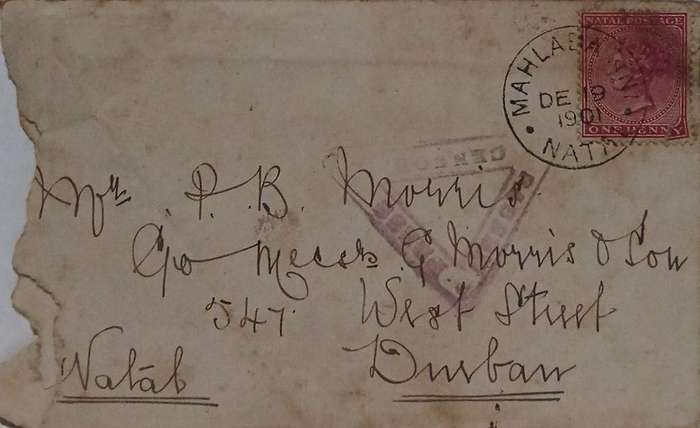 NATAL POSTAGE
ONE PENNY
DE 19
1901
CENSOR
Mr. P. B. Morris
C/o Messrs G Morris & Son
547 West Street
Durban
Natal